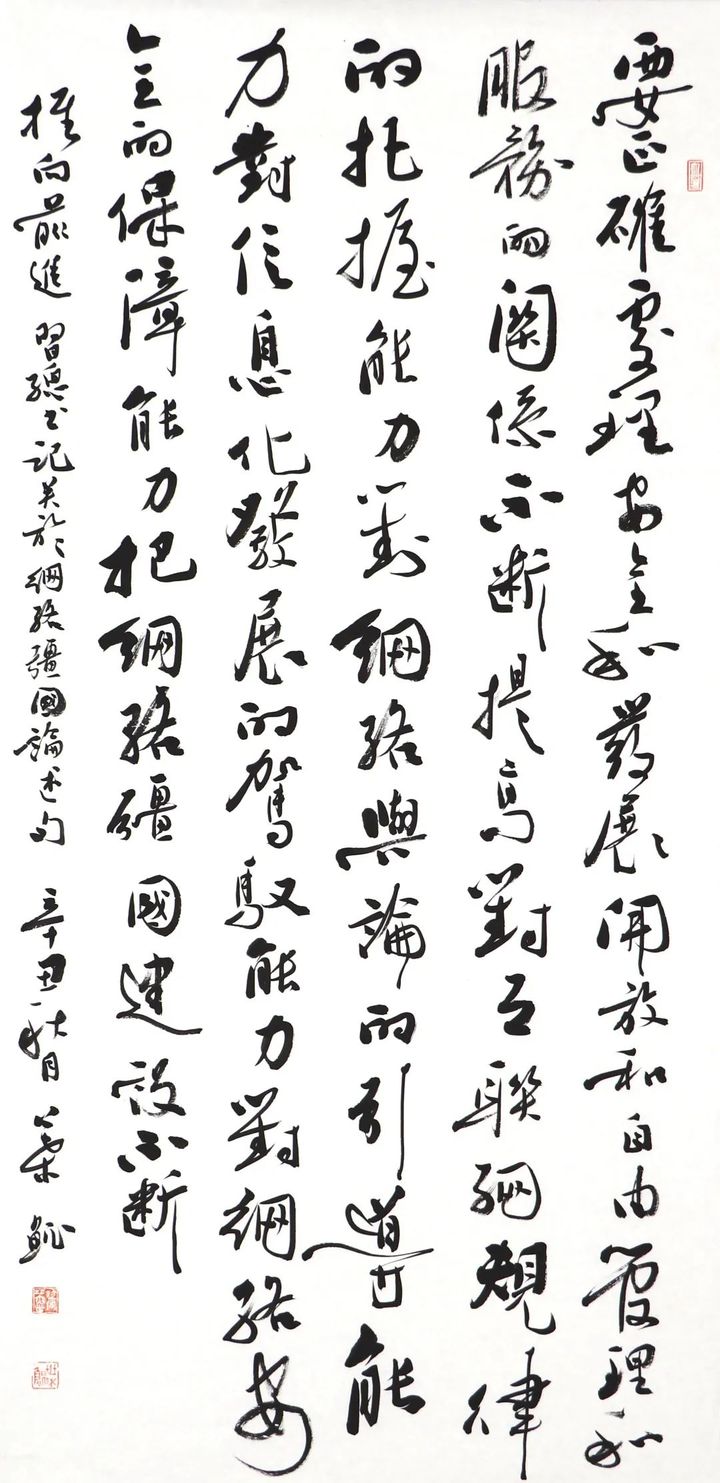 要正確處理安全和發展開放和自由管理和
服務的關係不斷提高對互聯網規律
的把握能力對網絡輿論的引導能
力對信息化發展的駕馭能力對網絡安
全的保障能力把網絡彊國建設不斷
推向前進 習總书記关於網絡彊國論述句 辛丑秋月